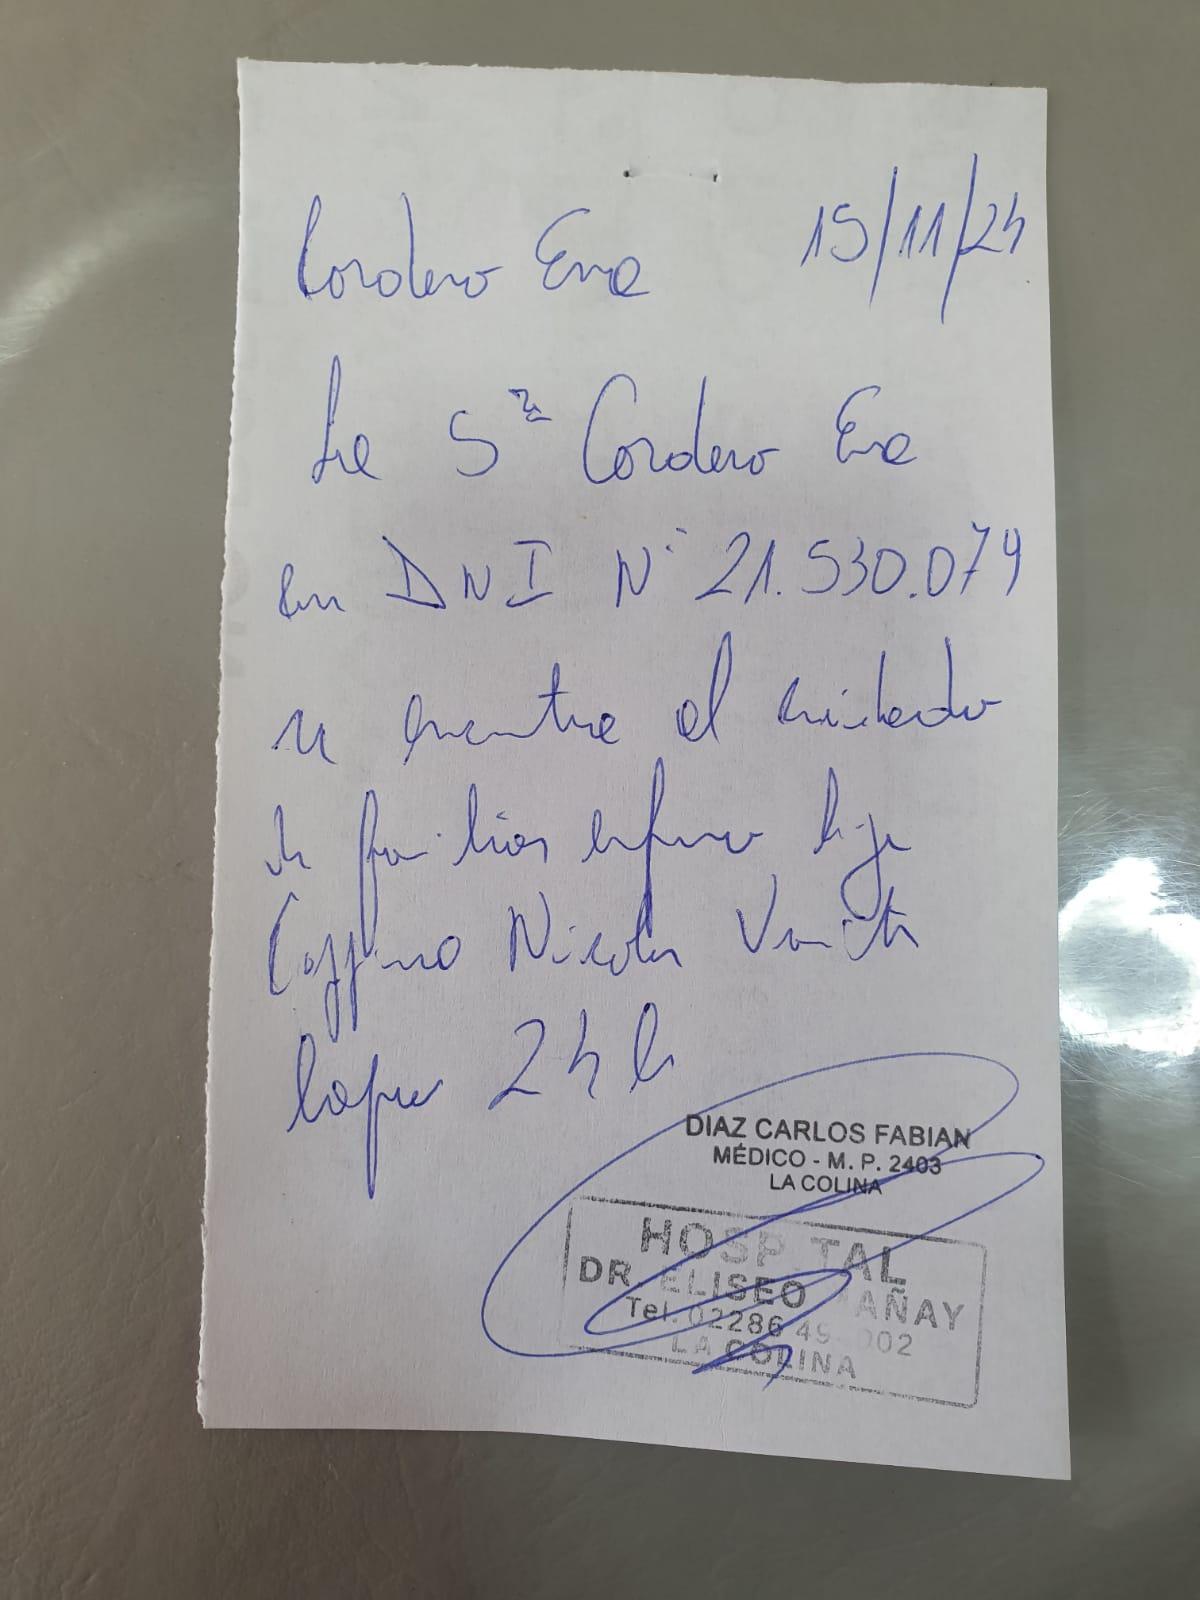 Cordero Eva 15/11/24
La Sra Cordero Eva
con DNI N° 21.530.079
se encuentra al cuidado
de familiar enfermo hija
Nicole
lapso 24 h
DIAZ CARLOS FABIAN
MÉDICO - M. P. 2403
LA COLINA
HOSPITAL
DR. ELISEO AÑAY
Tel. 02286 49 002
LA COLINA